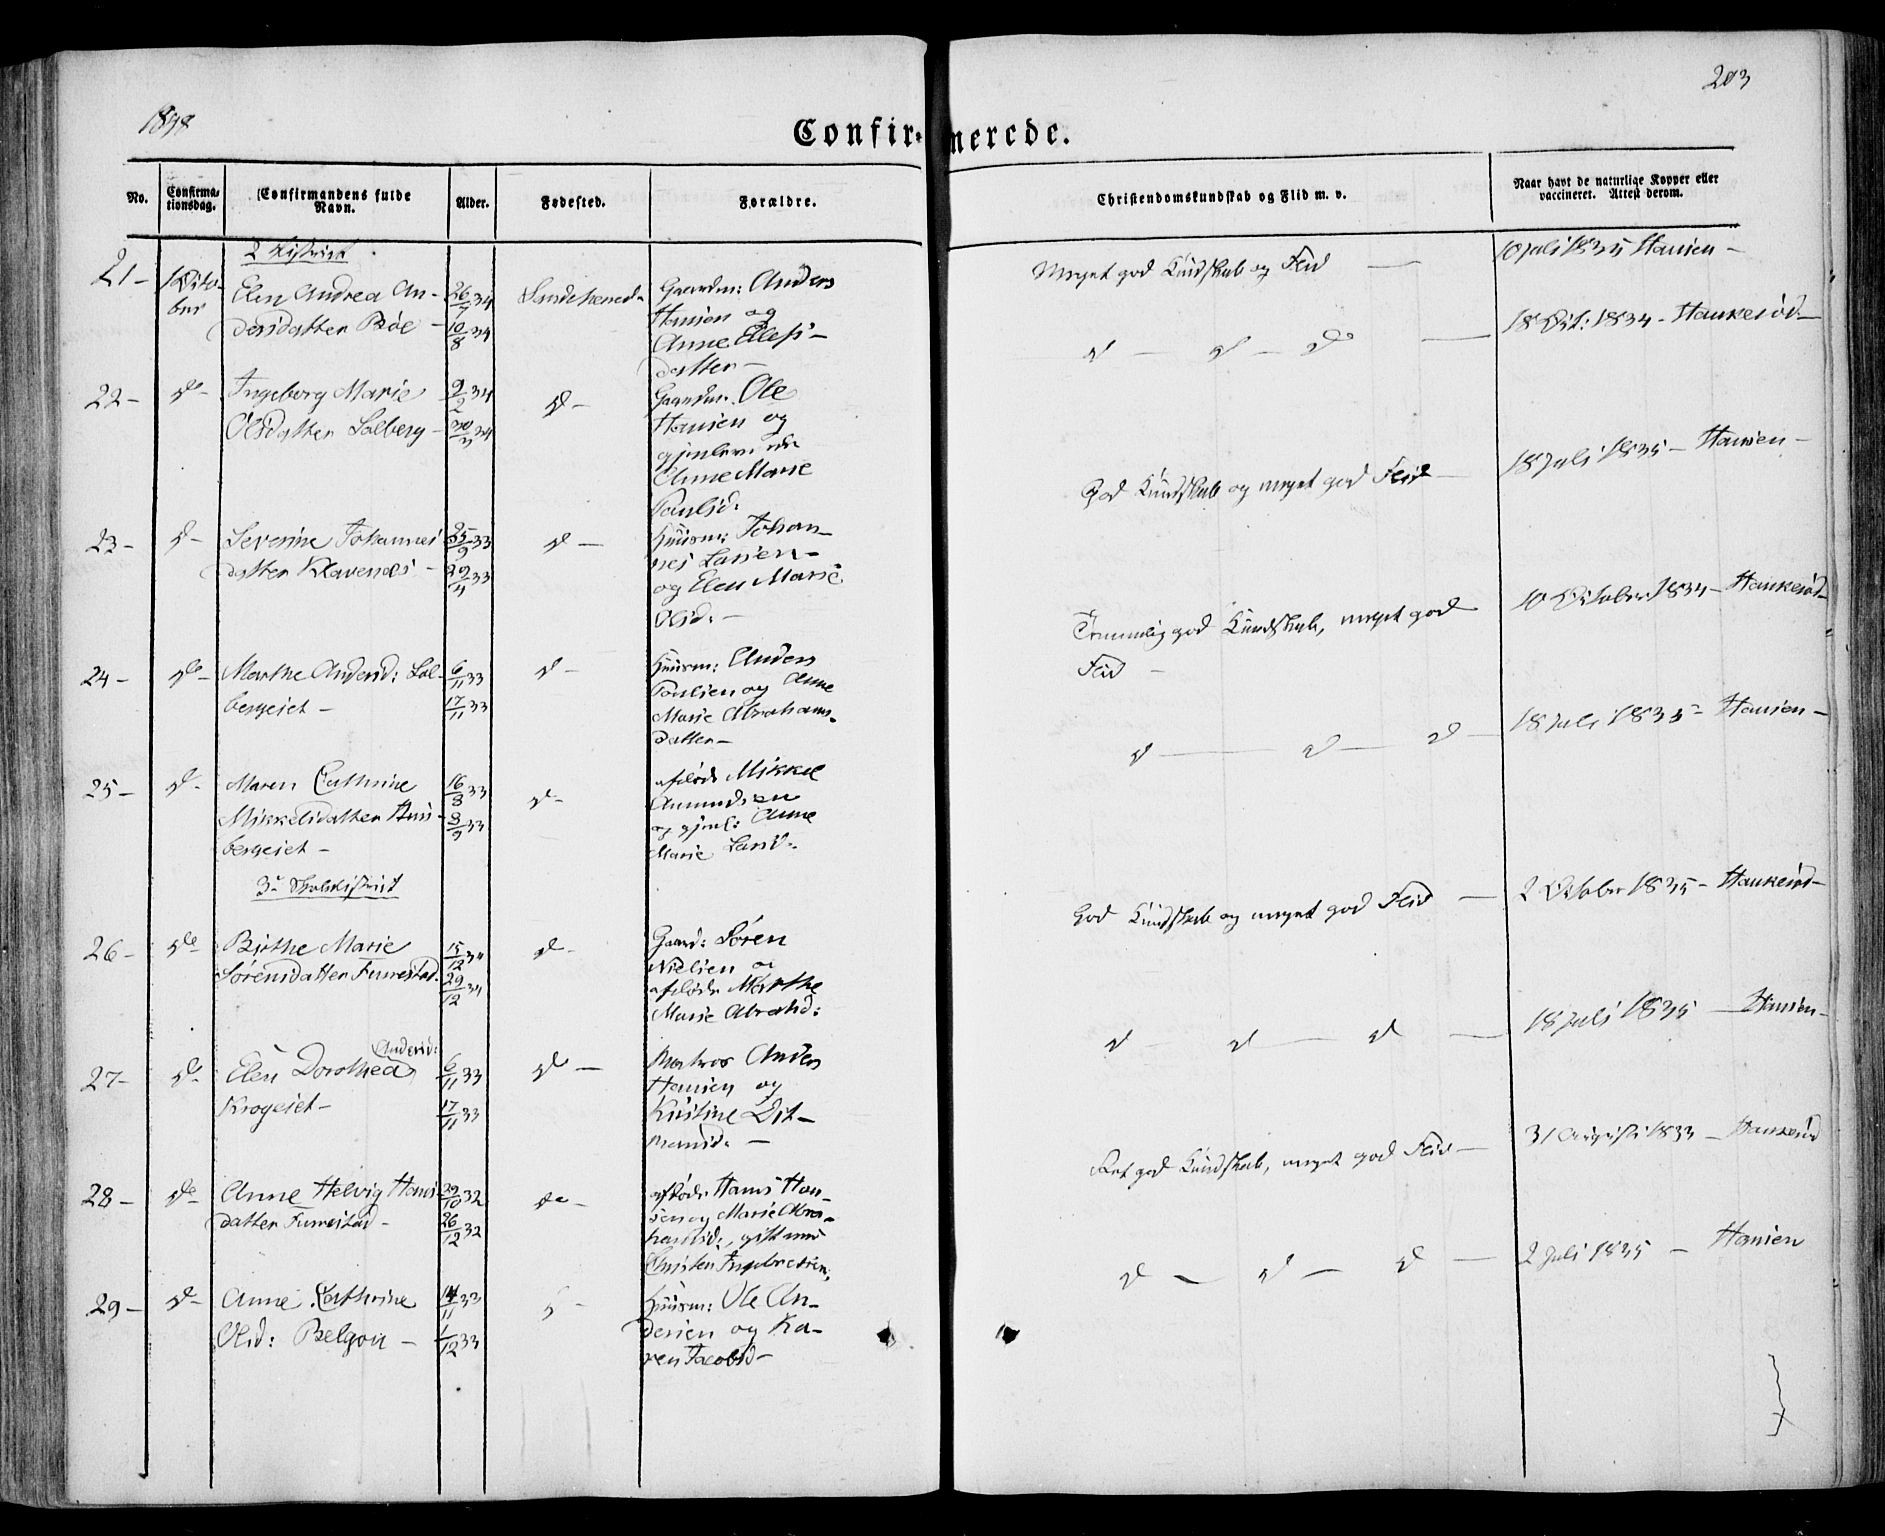 1848
203
Confirmerede.
No.
Confirmationsdag.
Confirmandens fulde Navn.
Alder.
Fødested.
Forældre.
Christendomskundskab og Flid m. v.
Naar havt de naturlige Kopper eller vaccineret. Attest derom.
2 District
21 - 1 Octo- Elen Andrea An- 26/7 34 Sandeherred - Gaardm: Anders
ber dersdatter Bøe - 10/8 34 Hansen og
Anne Oles-
datter -
Meget god Kundskab og Flid -
10 Juli 1835 Hansen -
22 - do - Ingeborg Marie 9/2 34 do - Gaardm. Ole
Olsdatter Solberg - 30/3 34 Hansen og
Anne Marie
Poulsd:
do - do - do -
18 Oct: 1834 - Haukerød -
23 - do - Severine Johannes 25/9 33 do - Huusm: Johan-
datter Klavenæs - 29/ 33 nes Larsen -
og Elen Marie
Olsd: -
God Kundskab og meget god Flid -
18 Juli 1835 - Hansen -
24 - do - Marthe Andersd: Sol- 6/11 33 do - Huusm: Anders
bergeiet - 17/11 33 Poulsen og Anne
Marie Abrahams-
datter -
Temmelig god Kundskab, meget god
Flid -
10 October 1834 - Haukerød -
25 - do - Maren Cathrine 16/8 33 do - afdøde Mikkel
Mikkelsdatter 8/9 33 Amundsen
bergeiet - og gjenl: Anne
Marie Larsd:
do - do - do -
18 Juli 1835 - Hansen -
3de Skoledistrict
26 - do - Birthe Marie 15/12 34 do - Gaard: Søren
Sørensdatter Furrestad 29/12 34 Nielsen og
afdøde Marthe
Marie Abrahd:
God Kundskab og meget god Flid -
2 October 1835 - Haukerød -
Andersd:
27 - do - Elen Dorothea 6/11 33 do - Matros Anders
Krogeiet - 17/11 33 Hansen og
Kirstine Dit-
mansd: -
do - do - do -
18 Juli 1835 - Hansen -
28 - do - Anne Helvig Hans 29/10 32 do - afdøde Hans Han-
datter Furrestad - 26/12 32 sen og Marie Abra-
hamsd:, gift med
Christen Ingebretsen,
Ret god Kundskab, meget god Flid -
31 August 1833 - Haukerød
29 - do - Anne Cathrine 14/11 33 Huusm: Ole An-
Olsd: Belgou - 1/12 33 dersen og Ka-
ren Jacobsd -
do - do - do -
2 Juli 1835 - Hansen